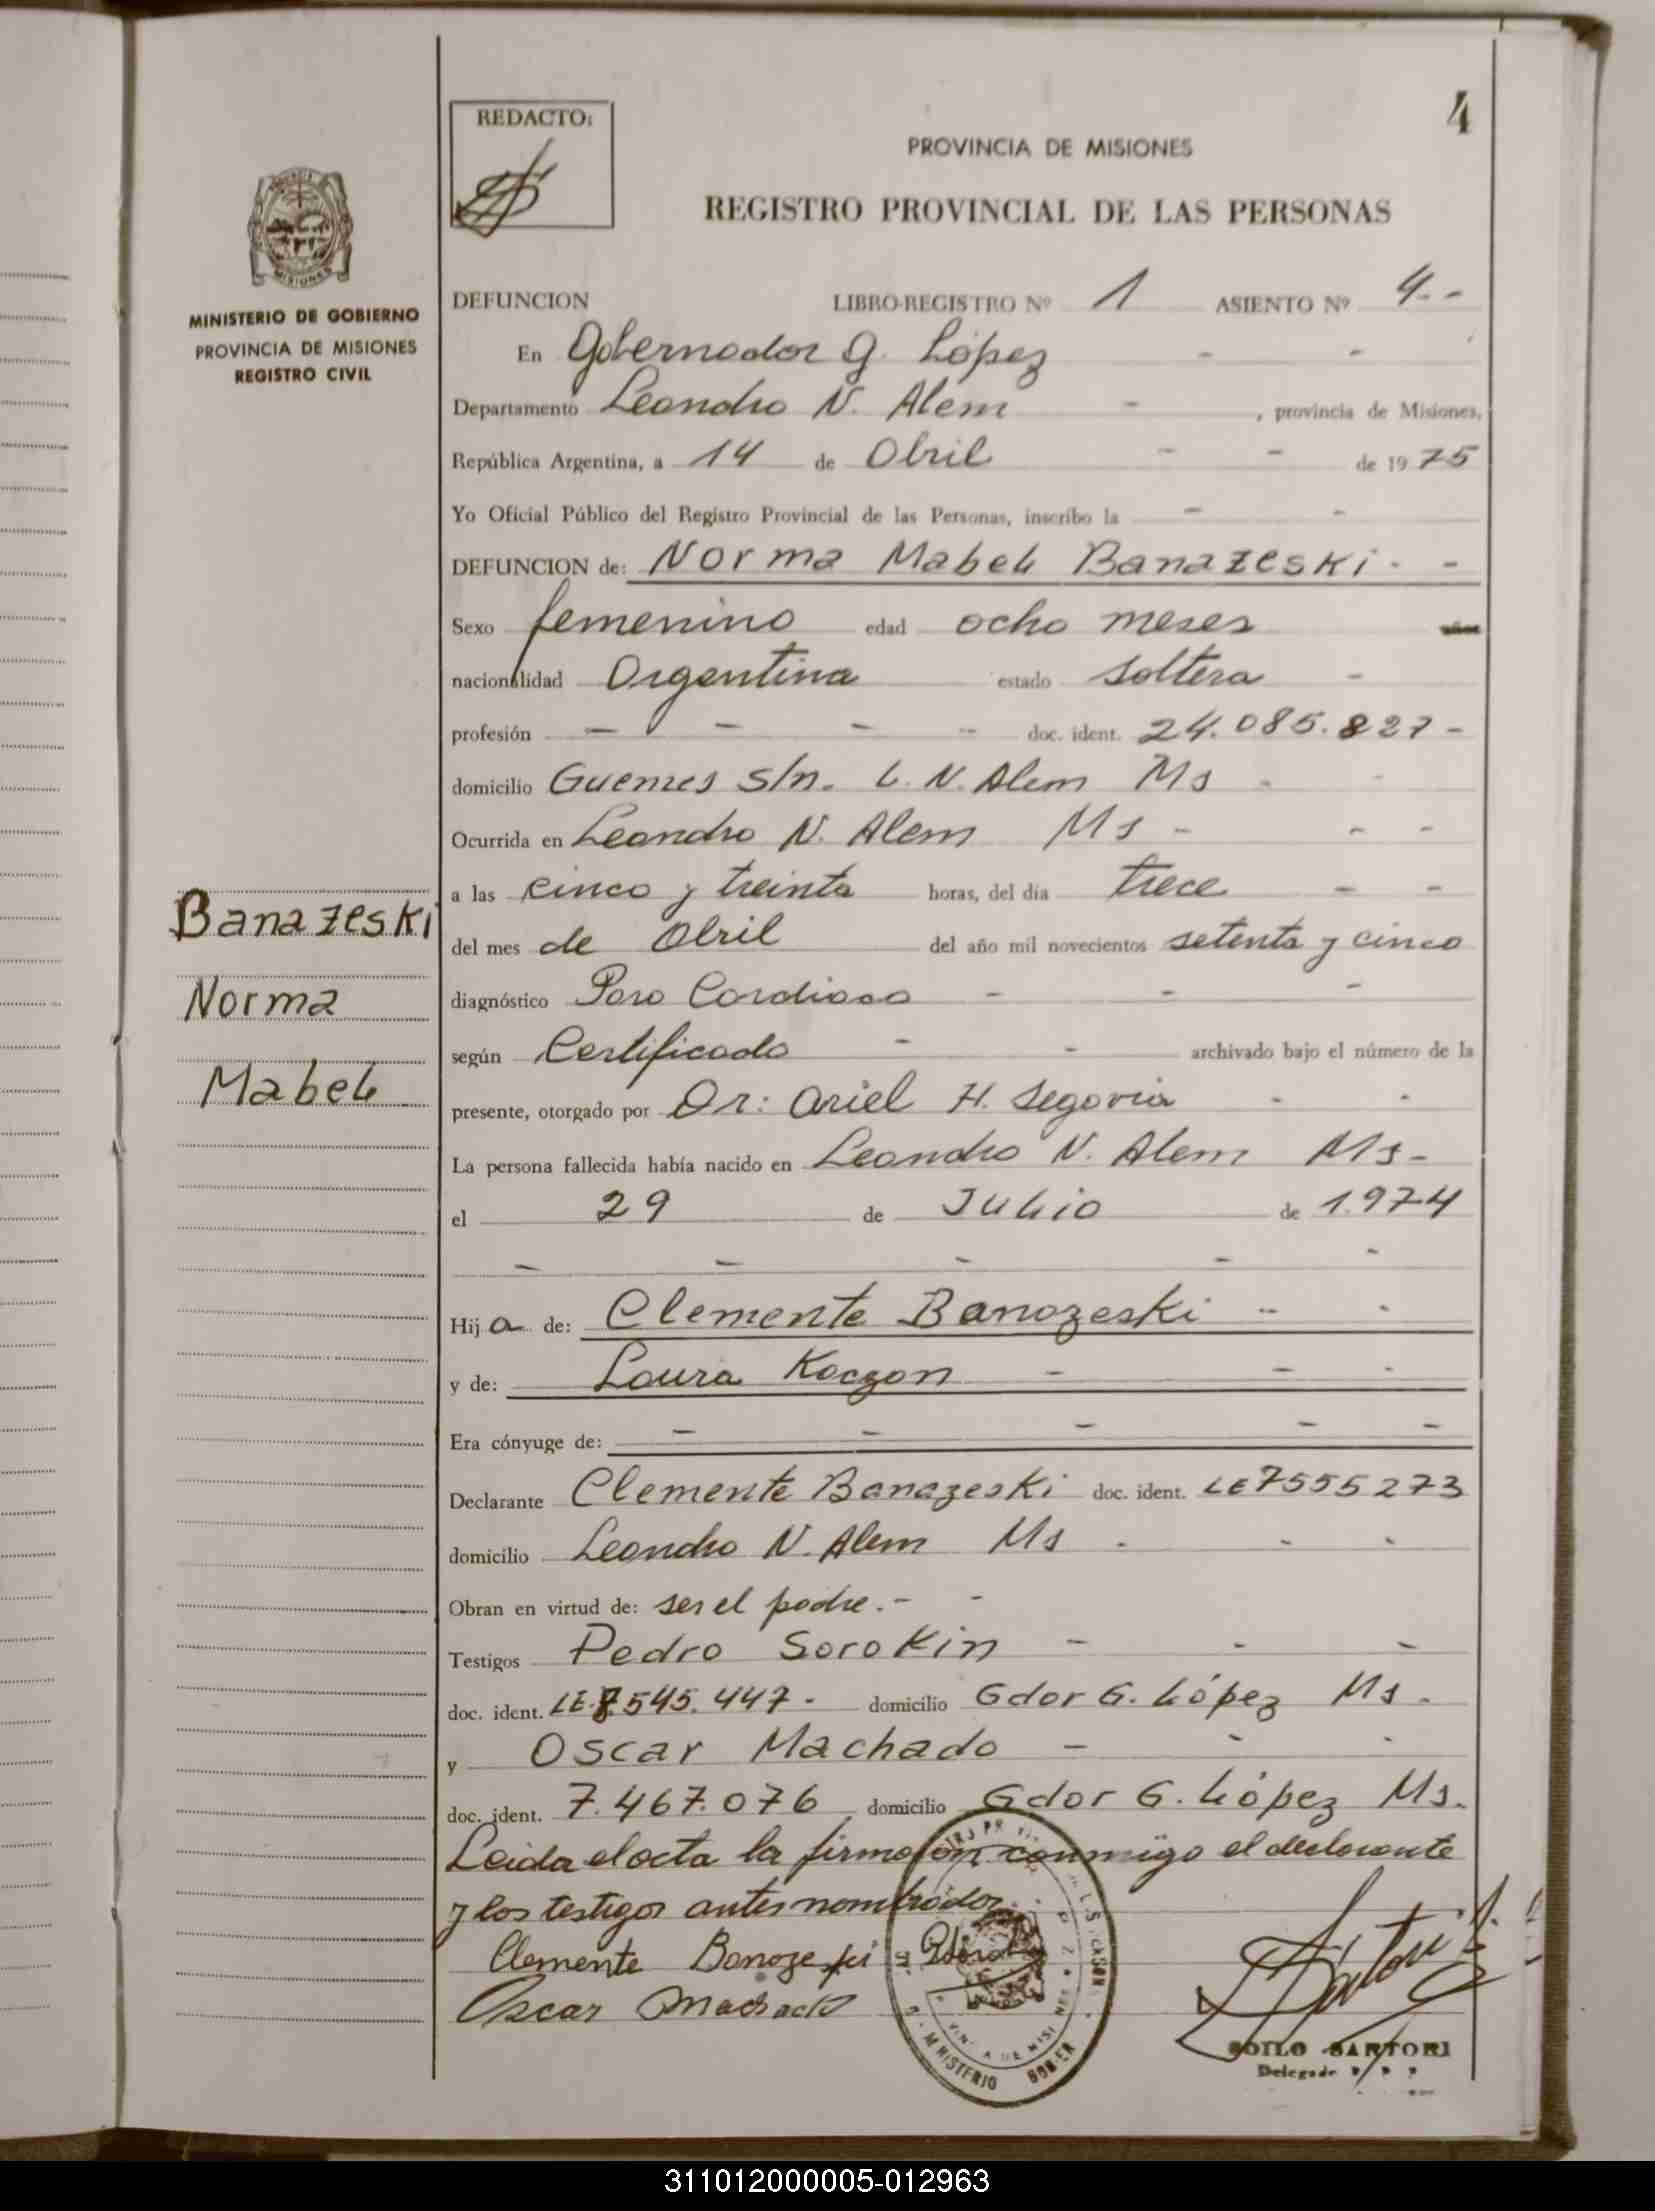 4
REDACTO:
PROVINCIA DE MISIONES
REGISTRO PROVINCIAL DE LAS PERSONAS
MISIONES
MINISTERIO DE GOBIERNO
PROVINCIA DE MISIONES
REGISTRO CIVIL
DEFUNCION LIBRO-REGISTRO Nº 1 ASIENTO Nº 4--
En Gobernador G. López - -
Departamento Leandro N. Alem - , provincia de Misiones,
República Argentina, a 14 de Abril - - de 1975
Yo Oficial Público del Registro Provincial de las Personas, inscribo la - -
DEFUNCION de: Norma Mabel Banazeski - -
Sexo femenino edad ocho meses
nacionalidad Argentina estado soltera -
profesión - - - - doc. ident. 24.085.827-
domicilio Guemes s/n. L. N. Alem Ms -
Ocurrida en Leandro N. Alem Ms - - -
a las cinco y treinta horas, del día trece - -
del mes de Abril del año mil novecientos setenta y cinco
diagnóstico Paro Cardiaco - - -
según Certificado - - archivado bajo el número de la
presente, otorgado por Dr: Ariel H. Segovia - -
La persona fallecida había nacido en Leandro N. Alem Ms-
el 29 de Julio de 1.974
- - - - -
Hija de: Clemente Banazeski - -
y de: Laura Koczon - - -
Era cónyuge de: - - - - -
Declarante Clemente Banazeski doc. ident. LE 7555273
domicilio Leandro N. Alem Ms - - -
Obran en virtud de: ser el padre.- -
Testigos Pedro Sorokin - - -
doc. ident. LE.7.545.447- domicilio Gdor G. López Ms.
y Oscar Machado - - -
doc. ident. 7.467.076 domicilio Gdor G. López Ms.
Leida el acta la firmaron conmigo el declarante
y los testigos antes nombrados
Clemente Banazeski
Oscar Machado
MINISTERIO
SOILO SARTORI
Delegado
Banazeski
Norma
Mabel
311012000005-012963